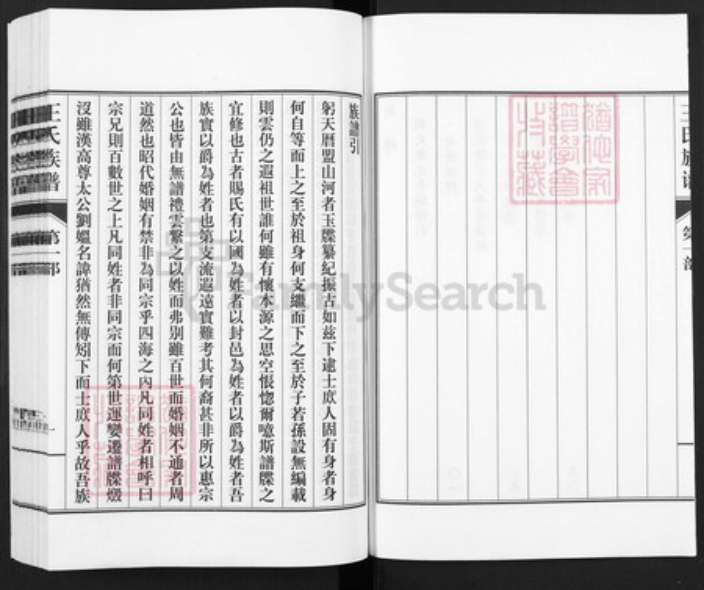 王氏族譜
第一部
族譜引
躬天曆盟山河者玉牒纂紀振古如茲下逮士庶人固有身者身
何自等而上之至於祖身何支繼而下之至於子若孫設無編載
則雲仍之遐祖世誰何雖有懷本源之思空悵惚爾噫斯譜牒之
宜修也古者賜氏有以國為姓者以封邑為姓者以爵為姓者吾
族實以爵為姓者也第支流遐遠實難考其何裔甚非所以惠宗
公也皆由無譜禮雲繫之以姓而弗別雖百世而婚姻不通者周
道然也昭代婚姻有禁非為同宗乎四海之內凡同姓者相呼曰
宗兄則百數世之上凡同姓者非同宗而何第世運變遷譜牒燬
沒雖漢高尊太公劉媼名諱猶然無傳矧下而士庶人乎故吾族
王氏族譜
第一部
FamilySearch